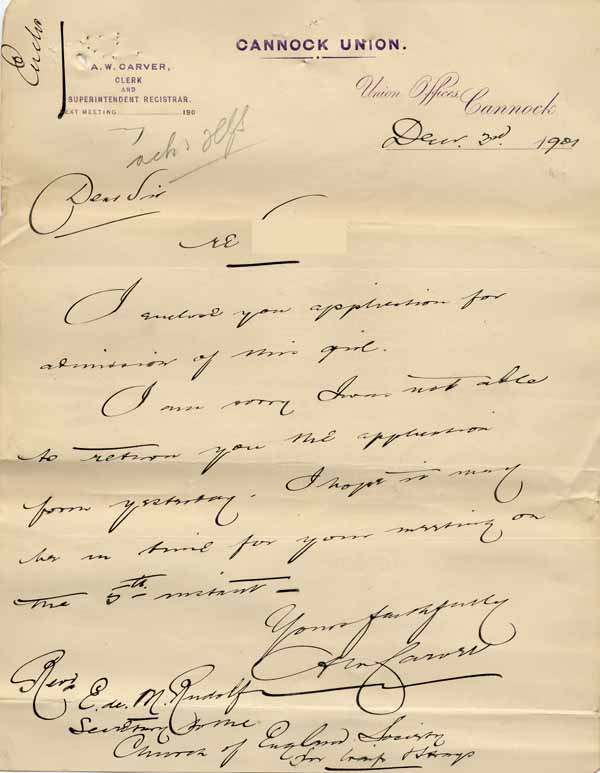 Encls
CANNOCK UNION.
A. W. CARVER,
CLERK
AND
SUPERINTENDENT REGISTRAR.
NEXT MEETING 190
Union Offices,
Cannock
Decr. 3rd. 1901
Dear Sir
RE
I enclose you application for
admission of this girl.
I am sorry I was not able
to return you the application
form yesterday. I hope it may
be in time for your meeting on
the 5th instant —
Yours faithfully
AW Carver
Revd. E. de M. Rudolf
Secretary to the
Church of England Society
for Waifs & Strays